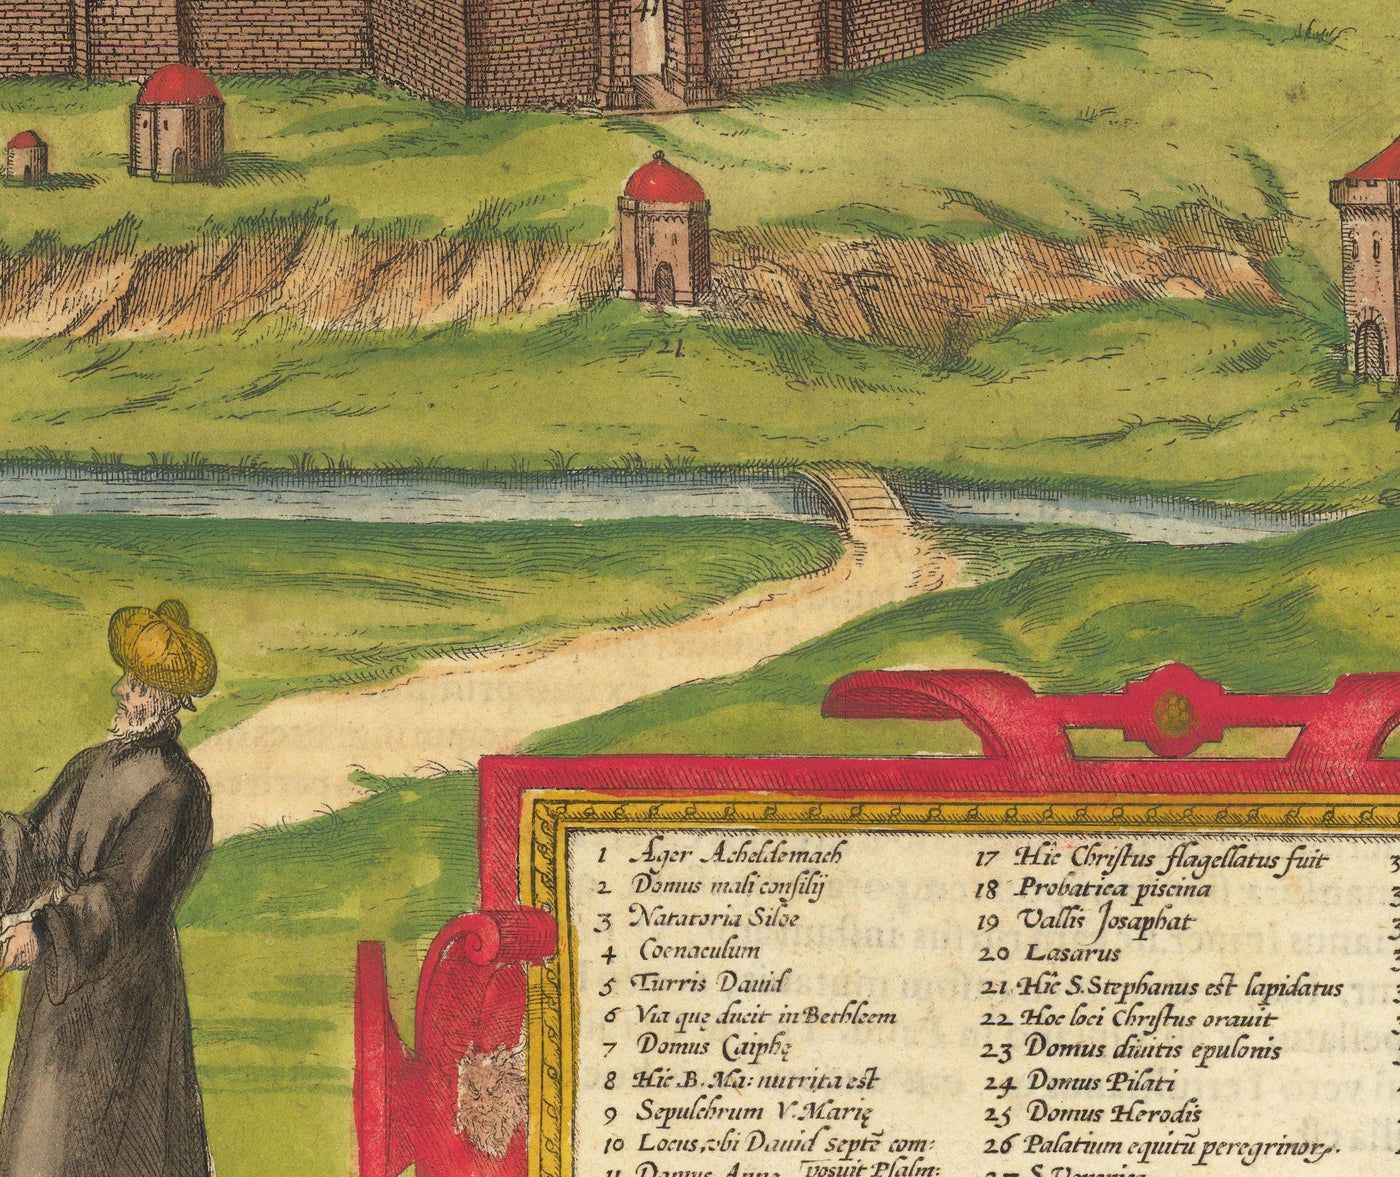 41
21.
1 Ager Acheldemach
2 Domus mali consilij
3 Natatoria Siloe
4 Coenaculum
5 Turris Dauid
6 Via quę ducit in Bethleem
7 Domus Caiphę
8 Hic B. Ma: nutrita est
9 Sepulchrum V. Marię
10 Locus, vbi Dauid septē com:
posuit Psalm:
11 Domus Anna
17 Hic Christus flagellatus fuit
18 Probatica piscina
19 Vallis Josaphat
20 Lasarus
21 Hic S. Stephanus est lapidatus
22 Hoc loci Christus orauit
23 Domus diuitis epulonis
24 Domus Pilati
25 Domus Herodis
26 Palatium equitū peregrinor.
27 S.